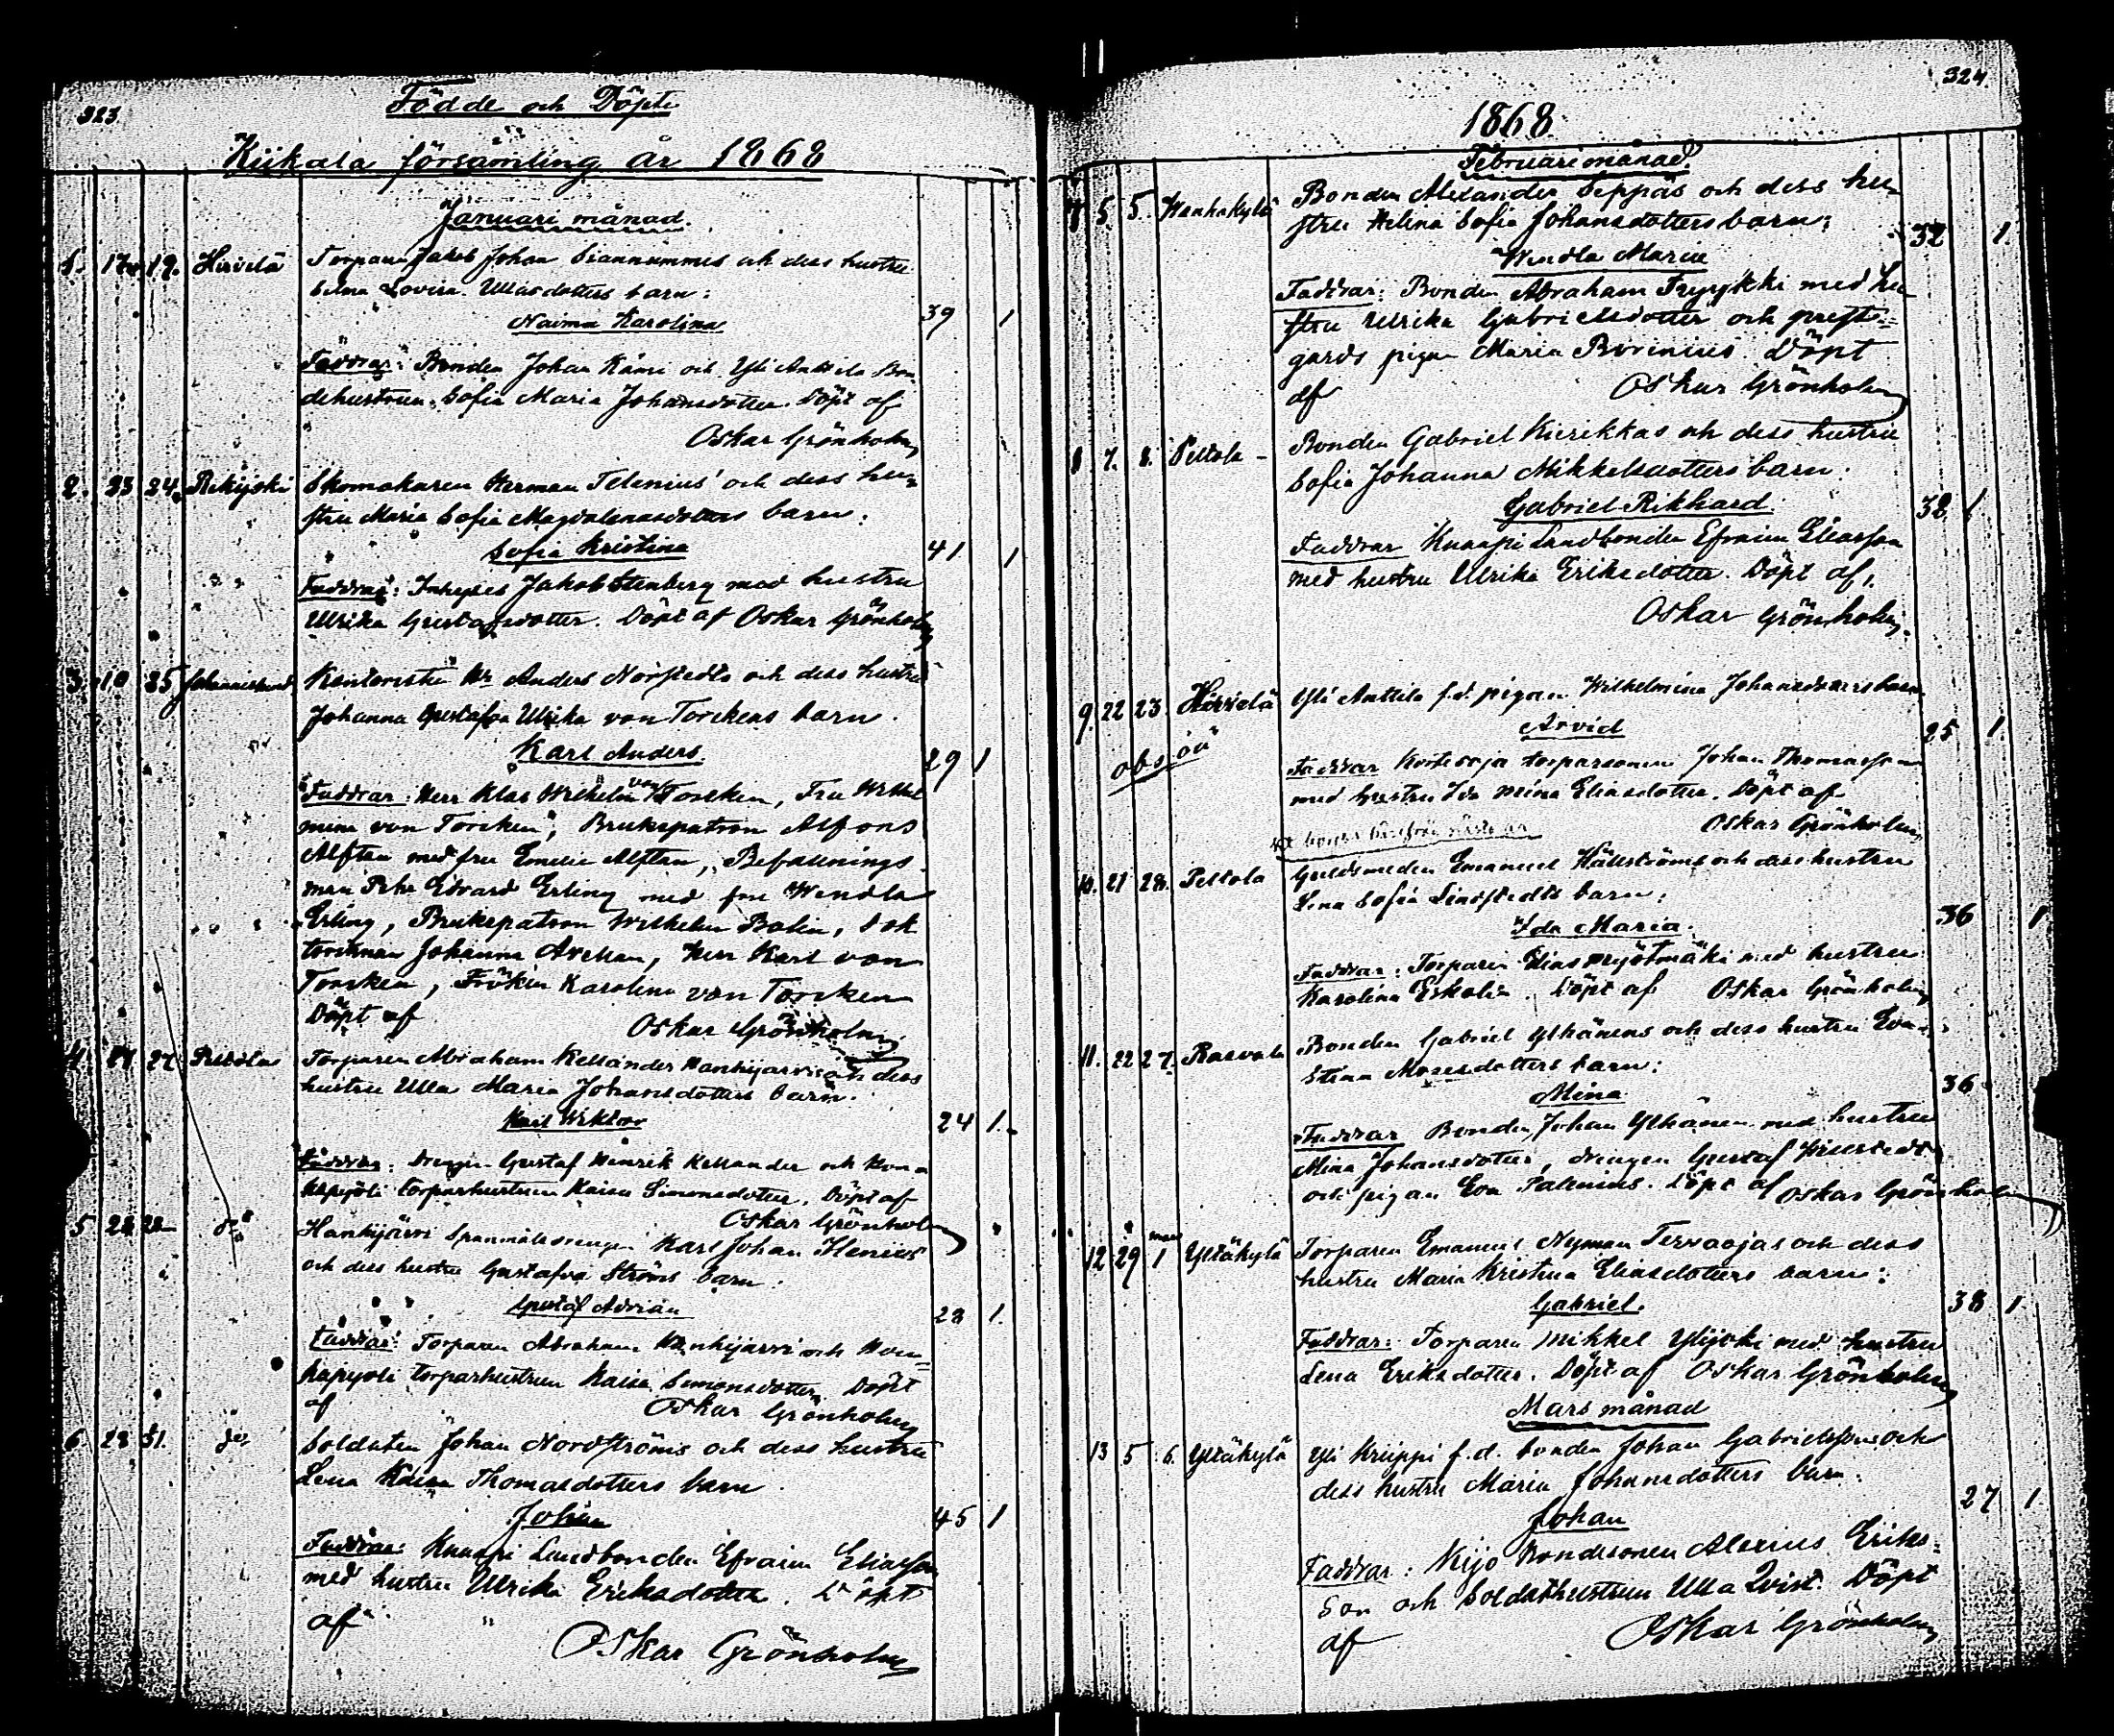 323.
Födde och Döpte
Kiikala församling år 1868
Januari månad.
1. 17 19. Hirvelä Torparen Jakob Johan och dess hustru
Lovisa Ullasdotters barn:
Naima Karolina 39 1
Faddrar: Bonden Johan och Yli Anttila Bon-
dehustrun Sofia Maria Johansdotter. Döpt af
Oskar Grönholm
2. 23 24. Rekijoki Skomakaren Herman Telenius och dess hu-
stru Maria Sofia Magdalenasdotters barn:
Sofia Kristina 41 1
Faddrar: Inhyses Jakob Stenberg med hustru
Ulrika Gustafsdotter. Döpt af Oskar Grönholm
3. 10 25 Johanneslund Kontoristen Hr Anders Norstedts och dess hustru
Johanna Gustafva Ulrika von Torckens barn.
Karl Anders. 29 1
Faddrar: Herr Klas Wilhelm von Torcken, Fru Wilhel
mina von Torcken, Brukspatron Alfons
Alftan med fru Emelie Alftan, Befallnings
man Pehr Edvard Erling med fru Wendla
Erling, Brukspatron Wilhelm Bolin, Dok
Johanna Avellan, Herr Karl von
Torcken, Fröken Karolina von Torcken
Döpt af Oskar Grönholm
4. 27 Peltola Torparen Abraham Kellanders Hanhijärvi och dess
hustru Ulla Maria Johansdotters barn.
Karl Wiktor 24 1.
Faddrar: Drengen Gustaf Henrik Kellander och
torparhustrun Kaisa Simonsdotter. Döpt af
Oskar Grönholm
5 28 do Hanhijärvi Spanmålsdrengen Karl Johan Ilenius
och dess hustru Gustafva Ströms barn.
Gustaf Adrian 28 1.
Faddrar: Torparen Abraham Hanhijärvi och
torparhustrun Kaisa Simonsdotter. Döpt
af Oskar Grönholm
6. 28 31. do Soldaten Johan Nordströms och dess hustru
Lena Kaisa Thomasdotters barn
Johan 45 1
Faddrar: Knaapi Landbonden Efraim Eliasson
med hustru Ulrika Eriksdotter. Döpt
af
Oskar Grönholm
324.
1868
Februari månad.
7 5. 5. Wanhakylä Bonden Alexander Seppäs och dess hu-
stru Helena Sofia Johansdotters barn: 32 1.
Wendla Maria
Faddrar: Bonden Abraham Tryykki med hu-
stru Ulrika Gabrielsdotter och prest-
gårds pigan Maria Döpt
af Oskar Grönholm
8 7. 8. Peltola Bonden Gabriel Kierikkas och dess hustru
Sofia Johanna Mikkelsdotters barn:
Gabriel Rikhard. 38 1
Faddrar Knaapi Landbonden Efraim Eliasson
med hustru Ulrika Eriksdotter. Döpt af.
Oskar Grönholm.
9. 22 23. Hirvelä Yli Anttila f.d. pigan Wilhelmina Johansdotters barn
Arvid 25 1.
obs. oä
Faddrar torparsonen Johan Thomasson
med hustru Ida Mina Eliasdotter. Döpt af
Oskar Grönholm
10. 21 28. Peltola Guldsmeden Emanuel Hällströms och dess hustru
Lena Sofia Lindstedts barn:
Ida Maria. 36 1
Faddrar: Torparen Elias Myötmäki med hustru
Karolina Eskolin. Döpt af Oskar Grönholm
11. 22 27. Rasvala Bonden Gabriel Ylhänens och dess hustru Eva
Stina Mosesdotters barn:
Mina 36
Faddrar Bonden Johan Ylhänen med hustru
Mina Johansdotter, drengen Gustaf
och pigan Eva Palenius. Döpt af Oskar Grönholm
12 29 mars 1 Yltäkylä Torparen Emanuel Nyman Tervaojas och dess
hustru Maria Kristina Eliasdotters barn:
Gabriel. 38 1.
Faddrar: Torparen Mikkel Ylijoki med hustru
Lena Eriksdotter. Döpt af Oskar Grönholm
Mars månad
13 5 6. Yltäkylä Yli Kriippi f.d. bonden Johan Gabrielssons och
dess hustru Maria Johansdotters barn:
Johan 27 1
Faddrar: Kijo Bondesonen Alexius Eriks-
son och Soldathustrun Ulla Qvist. Döpt
af Oskar Grönholm